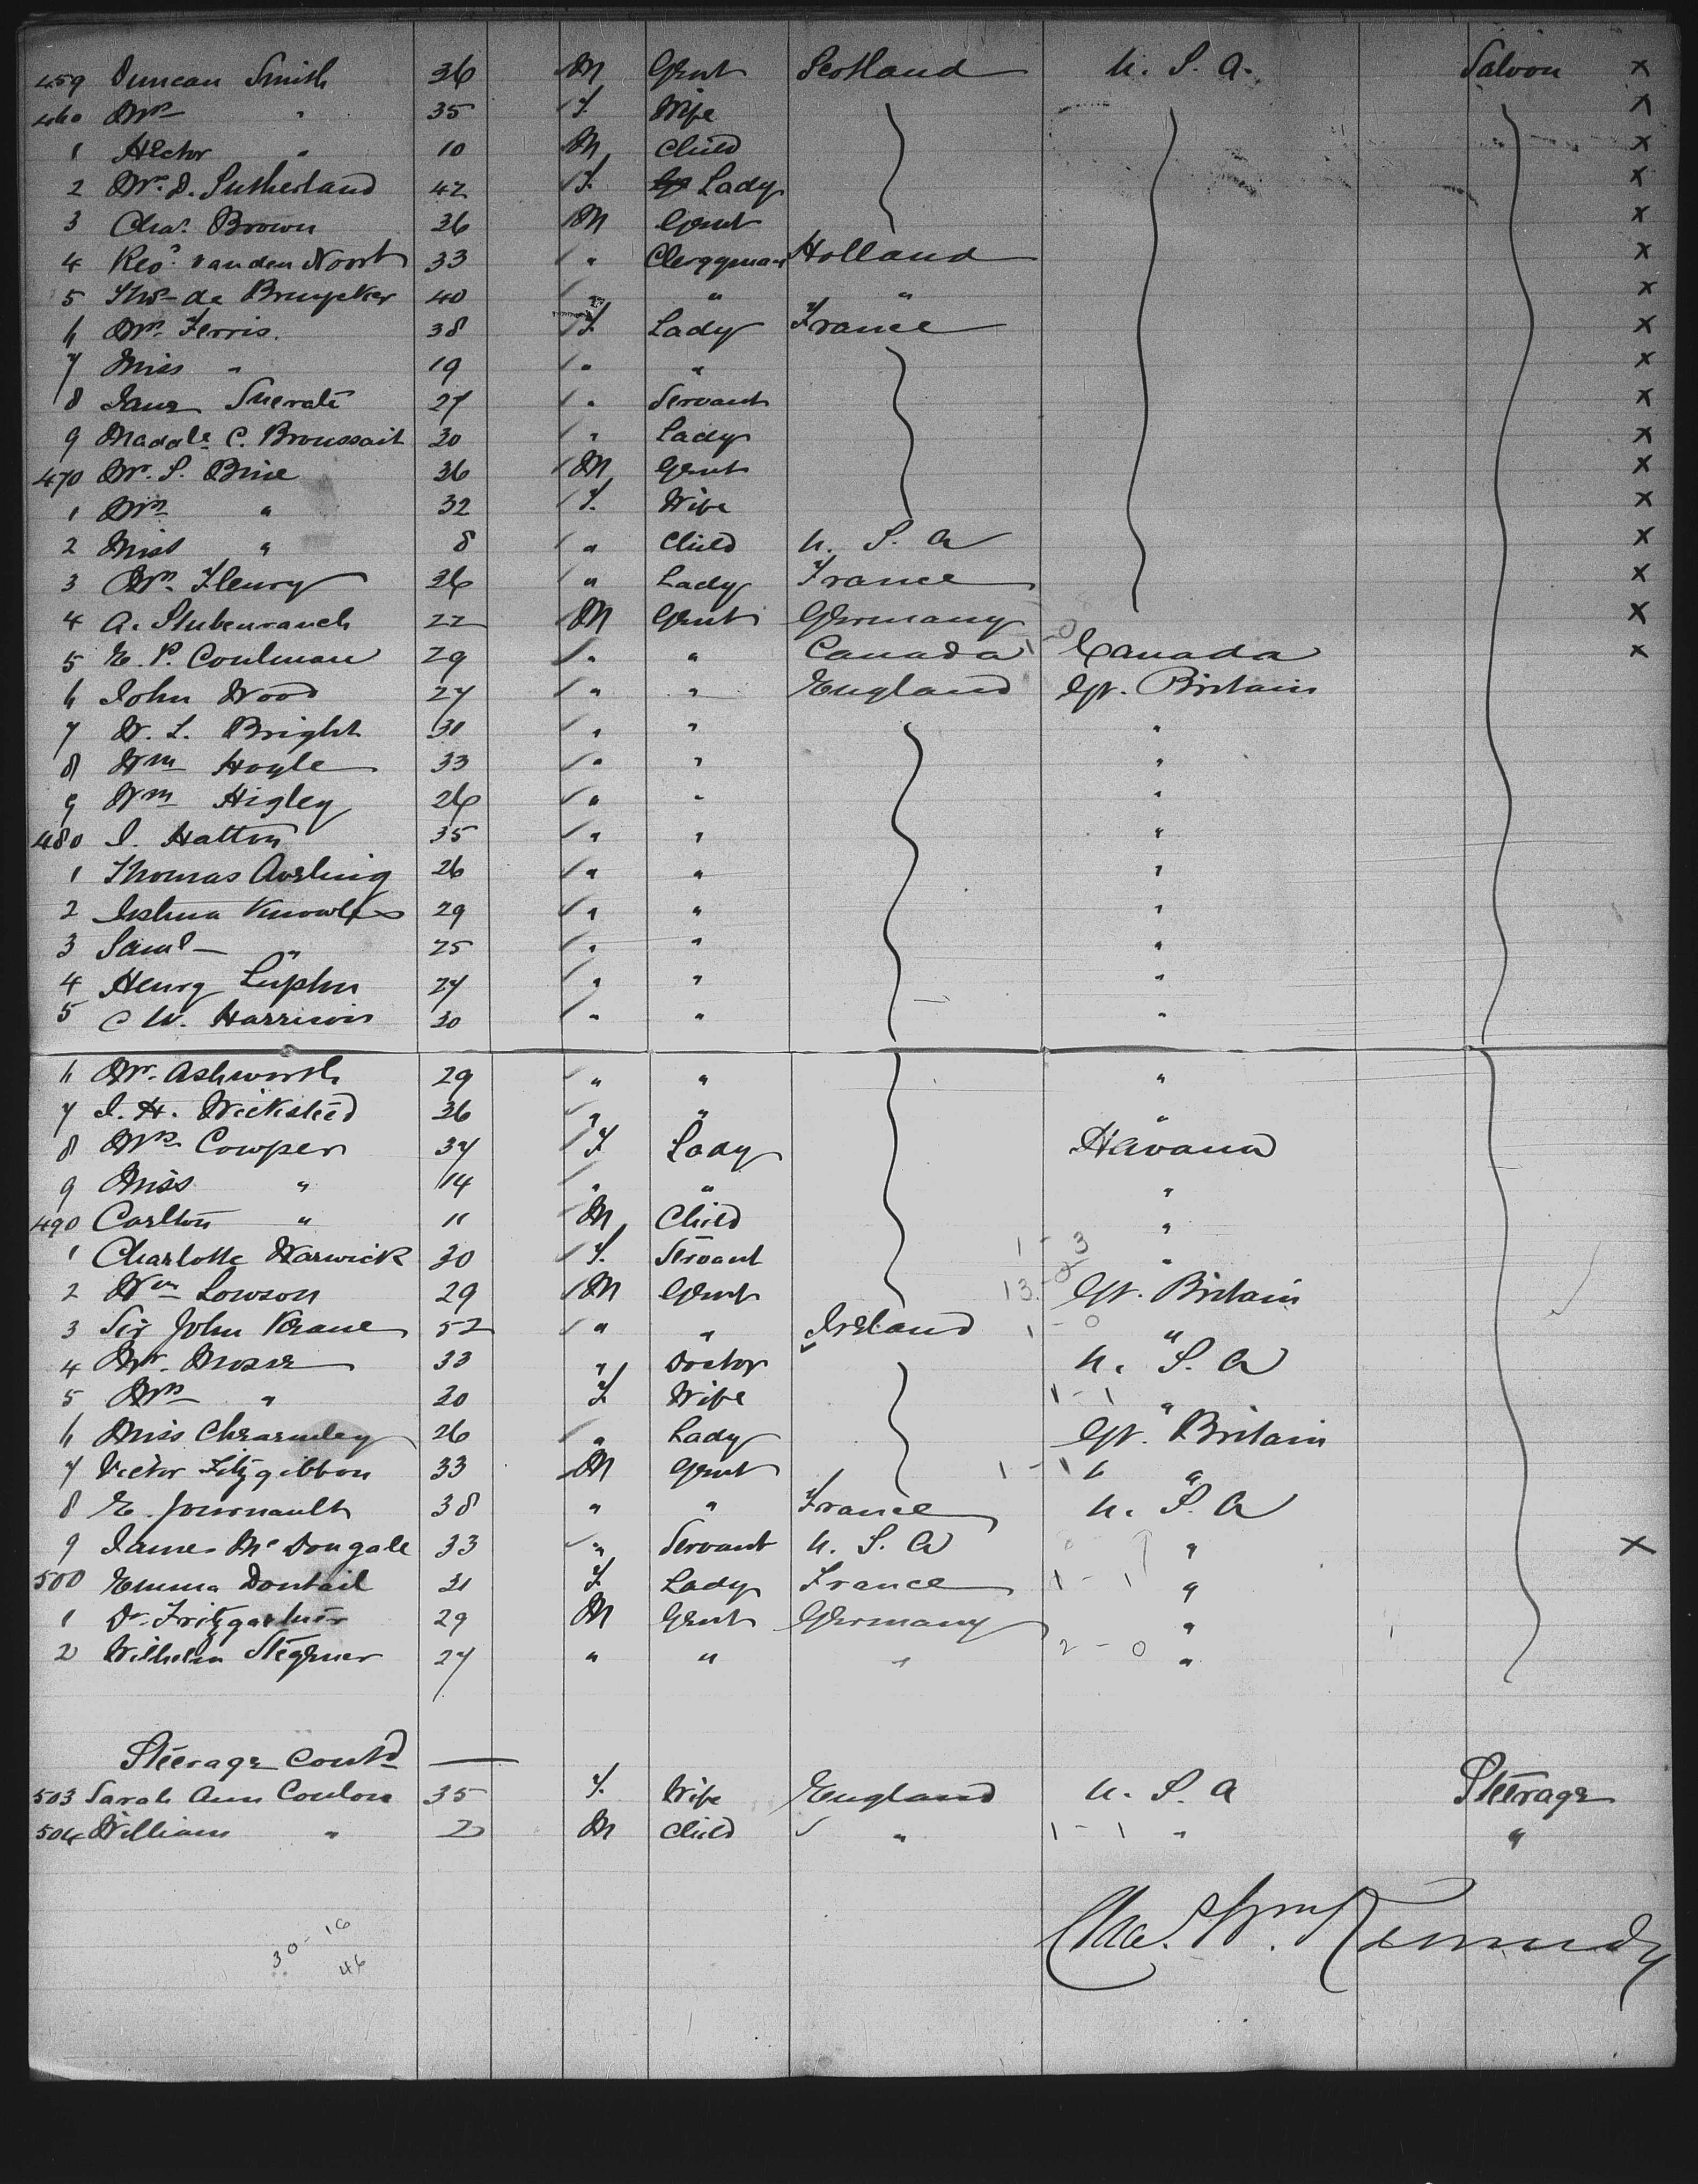 459 Duncan Smith 36 M Gent Scotland U. S. A. Saloon x
460 Mrs " 35 F. Wife x
1 Hector " 10 M Child x
2 Mrs. D. Sutherland 42 F. Lady x
3 Chas. Brown 36 M Gent x
4 Revd. van den Noort 33 " Clergyman Holland x
5 Thos de Bruycker 40 " " " x
6 Mrs Ferris. 38 F. Lady France x
7 Miss " 19 " " x
8 Jane 27 " Servant x
9 C. Broussait 30 " Lady x
470 Mr. S. Bine 36 M Gent x
1 Mrs " 32 F. Wife x
2 Miss " 8 " Child U. S. A x
3 Mrs. Fleury 26 " Lady France x
4 A. Stubenrauch 22 M Gent Germany x
5 E. P. Coulman 29 " " Canada 1-0 Canada x
6 John Wood 27 " " England Gt. Britain
7 W. L. Bright 31 " " "
8 Wm Hoyle 33 " " "
9 Wm Higley 26 " " "
480 J. Hatton 35 " " "
1 Thomas Aveling 26 " " "
2 Joshua Knowles 29 " " "
3 Saml " 25 " " "
4 Henry Lupton 27 " " "
5 C W. Harrison 30 " " "
6 Mr. Ashworth 29 " " "
7 J. H. Wicksteed 36 " " "
8 Mrs Cowper 37 F Lady Havana
9 Miss " 14 " " "
490 Carlton " 11 M Child "
1 Charlotte Warwick 30 F. Servant 1-3 "
2 Wm Lowson 29 M Gent 13-0 Gt. Britain
3 Sir John Keane 52 " " Ireland 1-0 "
4 Mr. Mosse 33 " Doctor U. S. A
5 Mrs " 30 F Wife 1-1 "
6 Miss 26 " Lady Gt. Britain
7 Victor Fitzgibbon 33 M Gent 1-1 "
8 E. Journault 38 " " France U. S. A
9 James McDougale 33 " Servant U. S. A " x
500 Emma Doutail 31 F Lady France 1-1 "
1 Dr. 29 M Gent Germany "
2 Wilhelm Stegener 27 " " " 2-0 "
Steerage Contd —
503 Sarah Ann Conlon 35 F. Wife England U. S. A Steerage
504 William " 2 M Child " 1-1 " "
Chas. Wm Kennedy
30-16
46